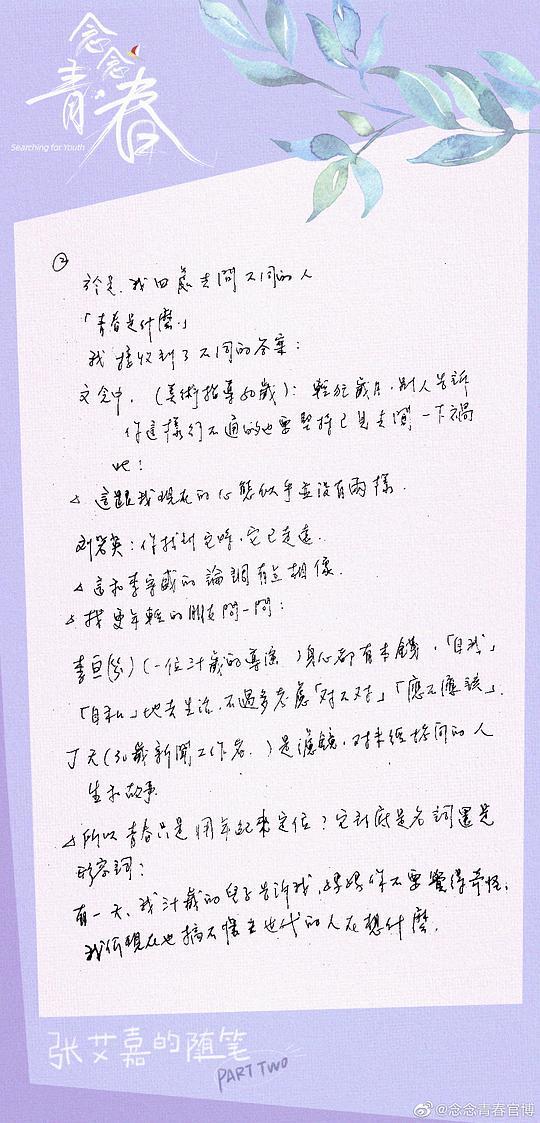 念念
青春
Searching for Youth
②
於是，我四處去問不同的人
「青春是什麼。」
我接收到了不同的答案：
文念中，(美術指導50歲)：輕狂歲月，別人告訴
你這樣行不通的也要堅持己見去闖一下禍
吧！
△ 這跟我現在的心態似乎並沒有兩樣．
刘若英：你找到它時，它已走遠．
△ 這和李宗盛的論調有点相像．
△ 找更年輕的朋友問一問：
李亘(一位卅歲的導演)身心都有本錢，「自我」
「自私」地去生活，不過多考慮「对不对」「應不應該」．
丁天(30歲新聞工作者)是濾鏡，对未經世间的人
生和故事
△ 所以青春只是用年紀來定位？它到底是名詞還是
形容詞？
有一天，我卅歲的兒子告訴我，媽媽你不要覺得奇怪，
我们現在也搞不懂20世代的人在想什麼．
张艾嘉的随笔
PART TWO
@念念青春官博